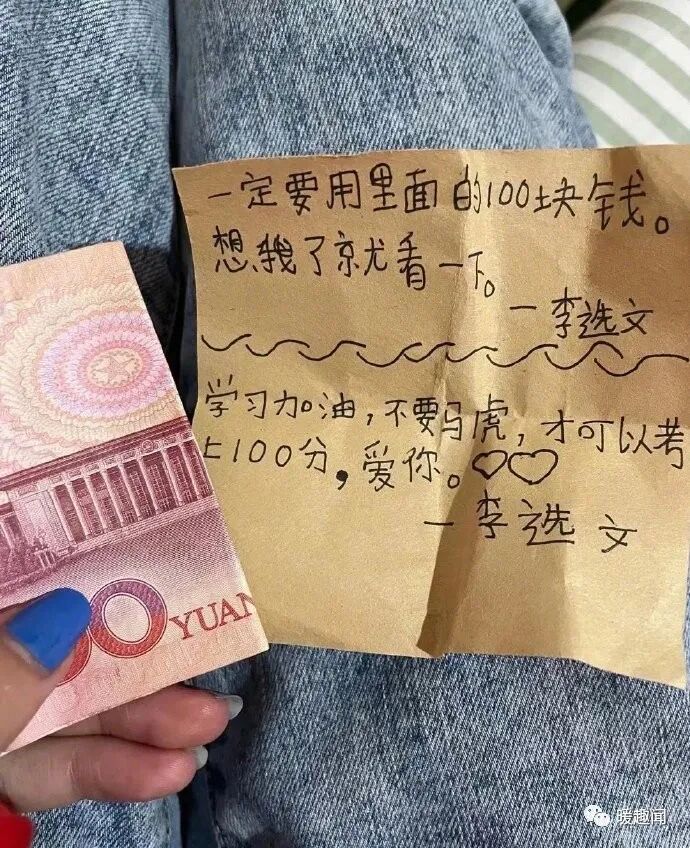 一定要用里面的100块钱。
想我了就看一下。
一李选文
学习加油，不要马虎，才可以考
上100分，爱你。♡♡
一李选文
00 YUAN
暖趣闻